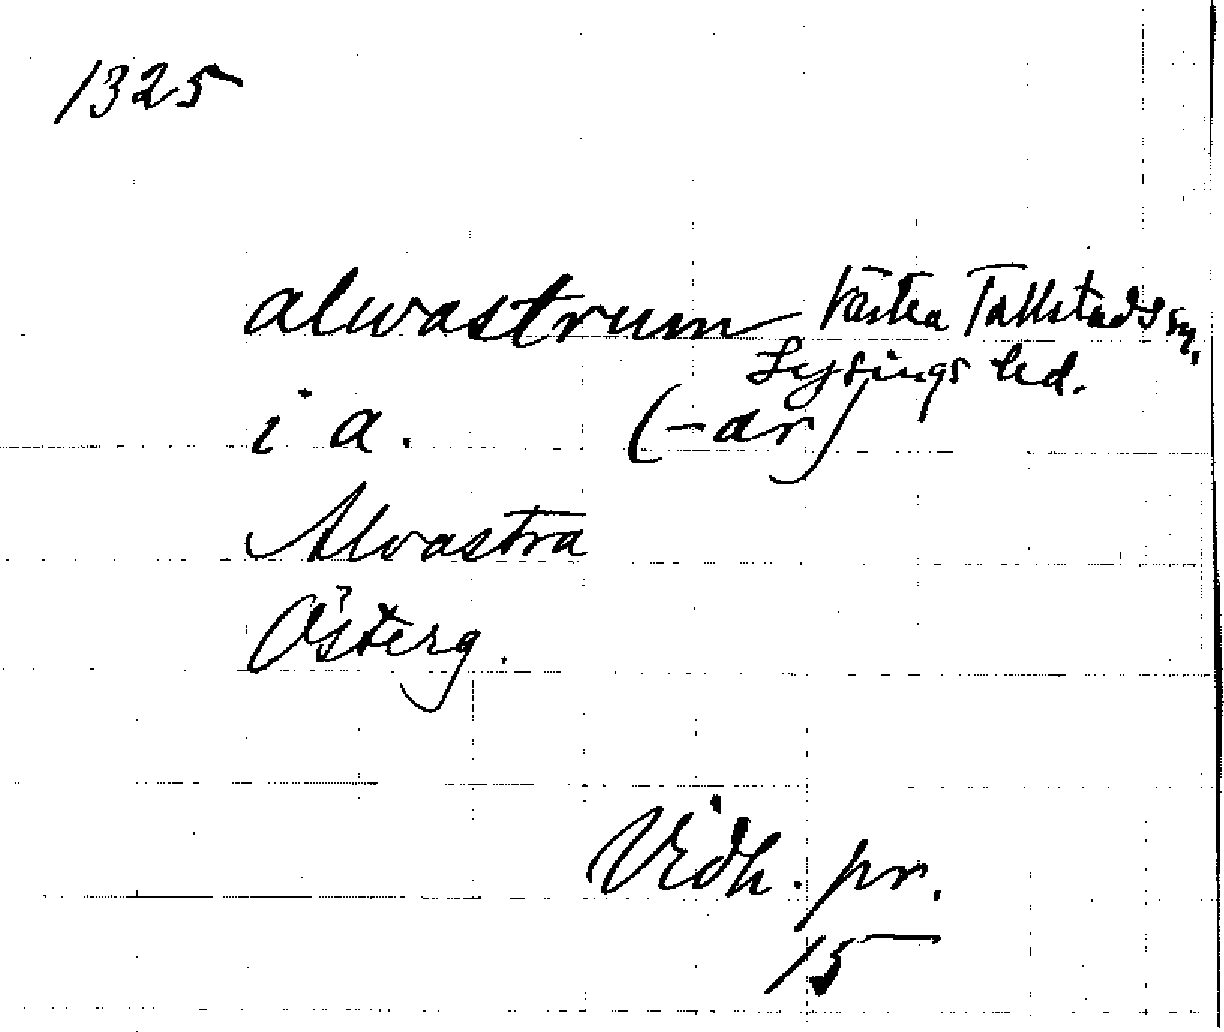 1325
alwastrum Västra Tollstads sn,
Lysings hd.
i a. (-ar)
Alvastra
Österg.
Vidh. pr.
15